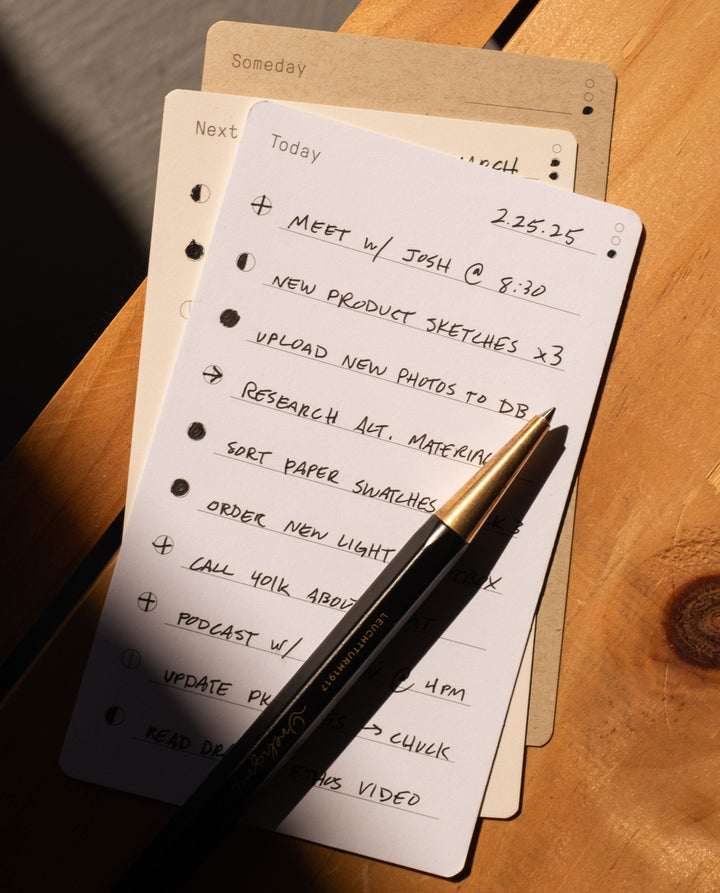 Someday
Next
ARCH
Today
2.25.25
MEET w/ JOSH @ 8:30
NEW PRODUCT SKETCHES x3
UPLOAD NEW PHOTOS TO DB
RESEARCH ALT. MATERIAL
SORT PAPER SWATCHES
ORDER NEW LIGHT
CALL 401K
PODCAST W/ @ 4PM
UPDATE → CHUCK
READ VIDEO
LEUCHTTURM1917